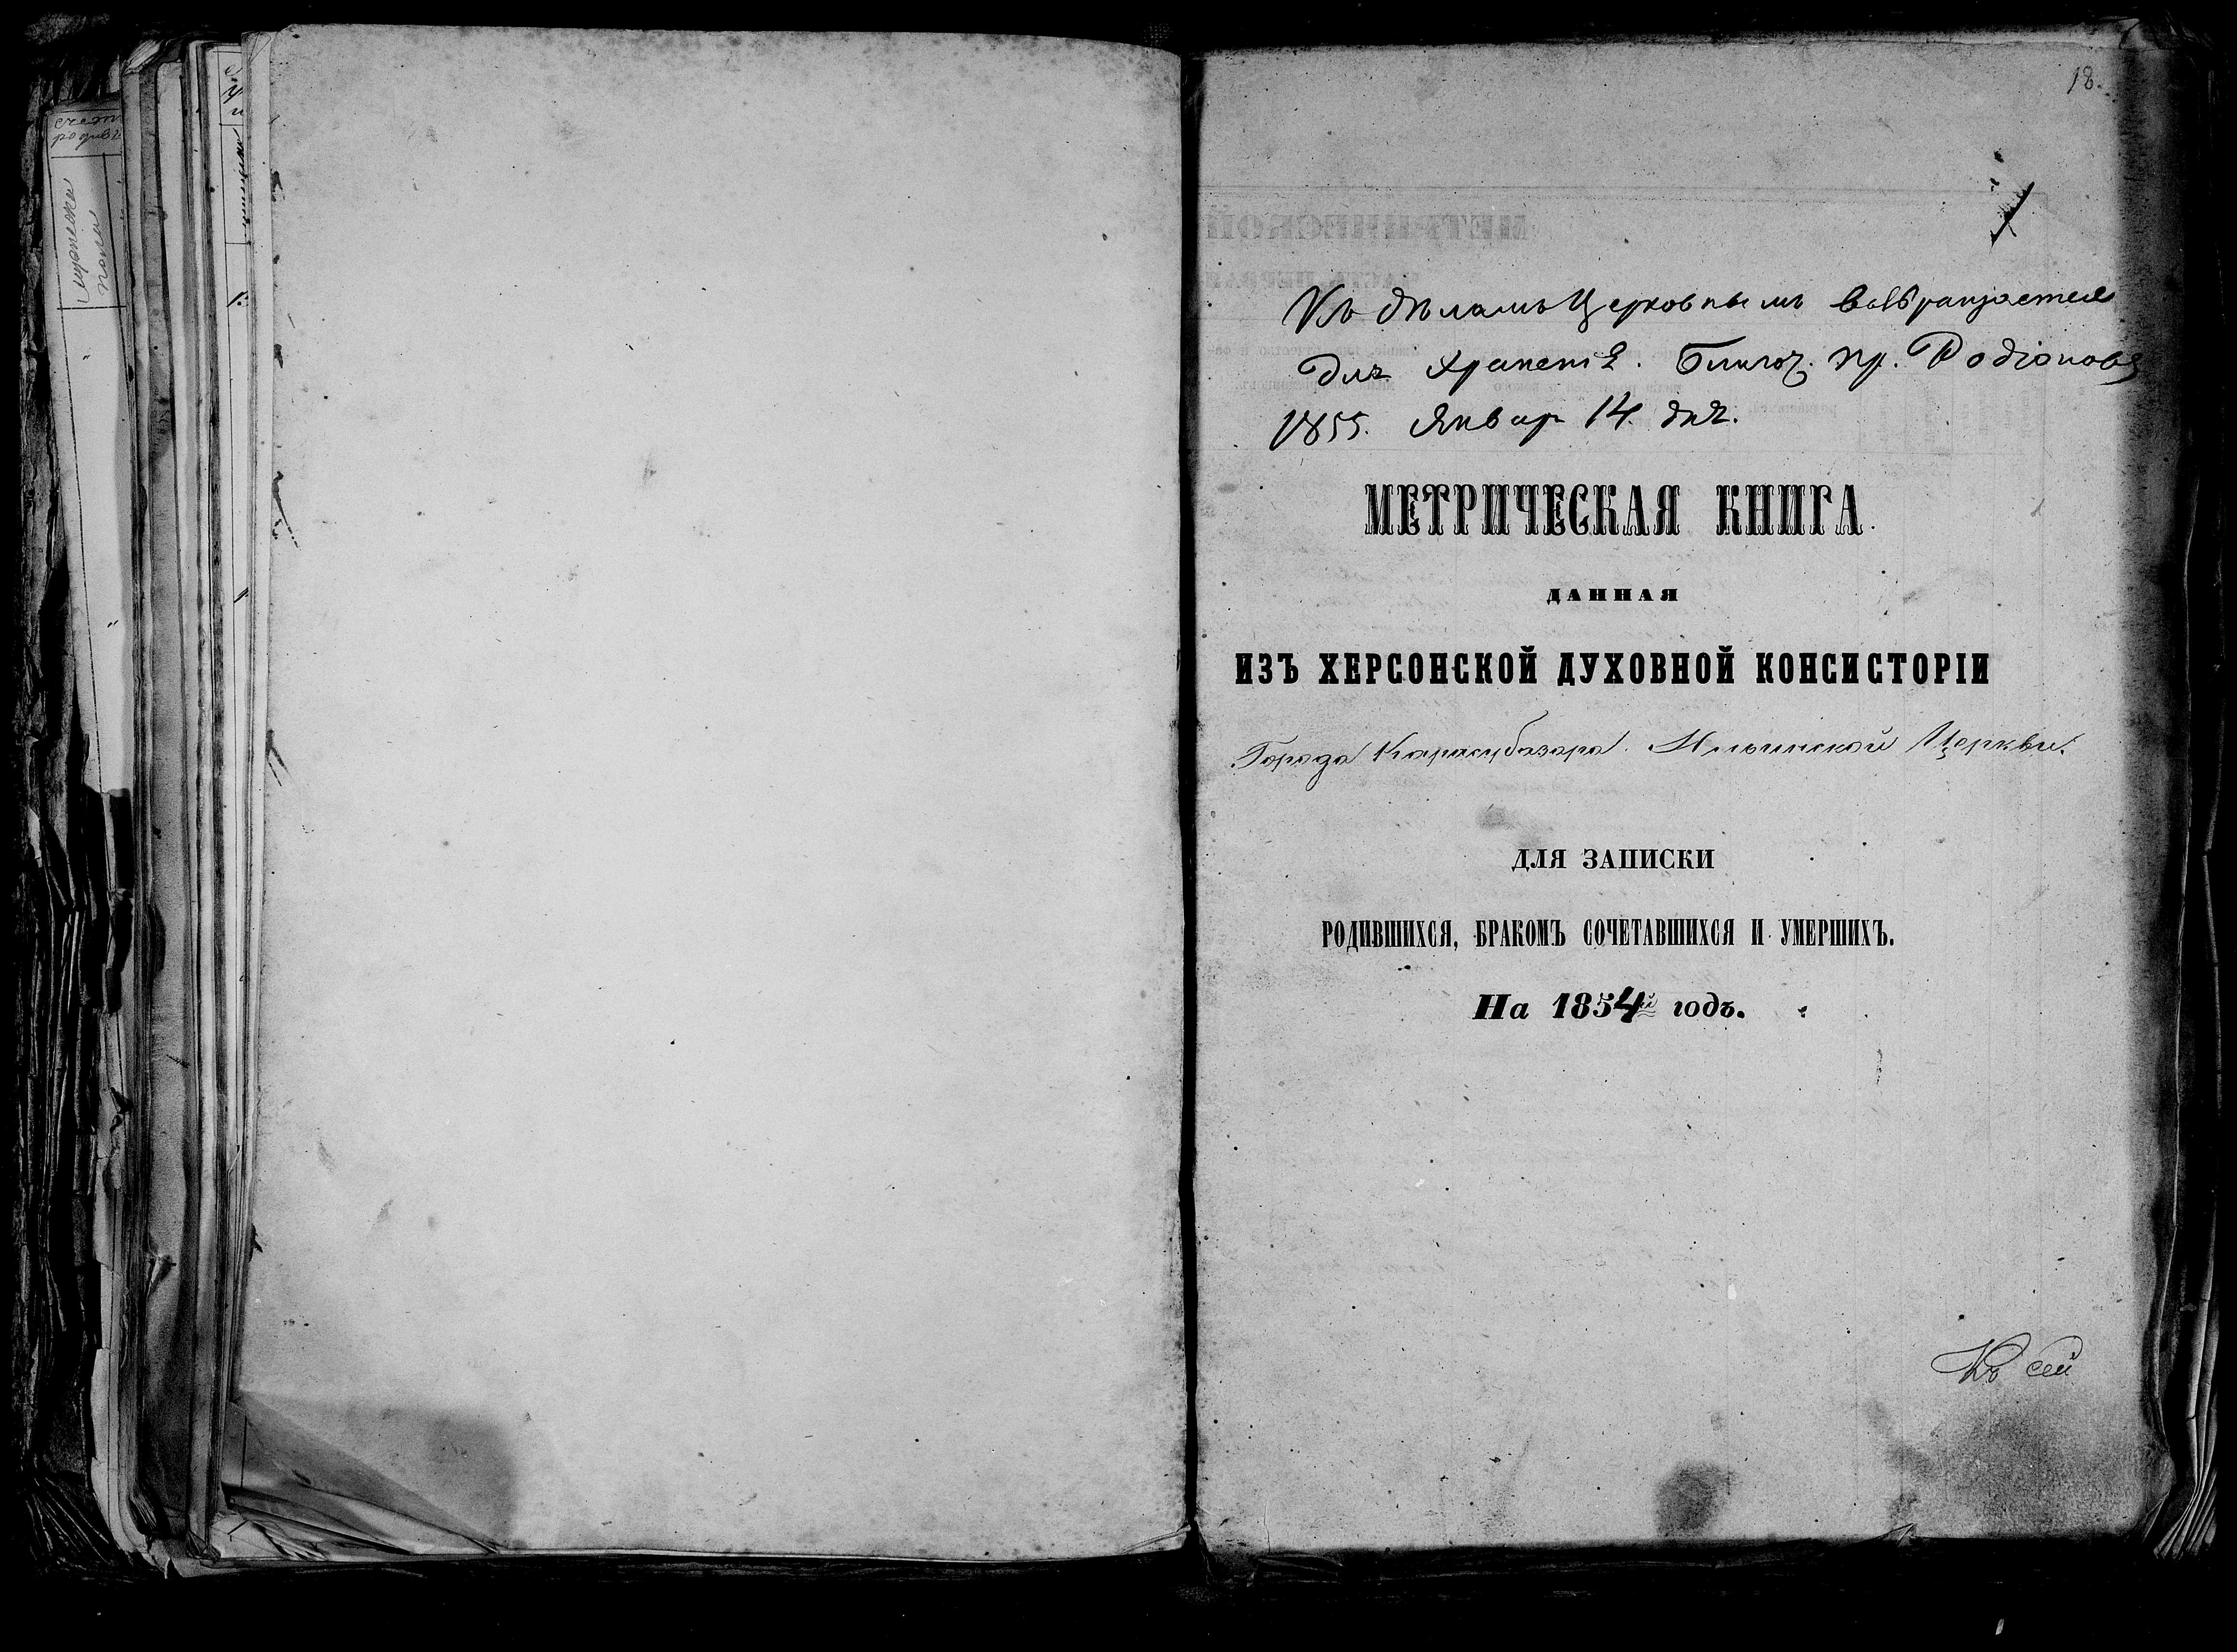 счетъ
родивш
мужеска
пола
18.
Къ дѣламъ Церковнымъ возвращается
для храненія. Благоч. пр. Родіоновъ
1855. Январ 14. дня.
МЕТРИЧЕСКАЯ КНИГА.
ДАННАЯ
ИЗЪ ХЕРСОНСКОЙ ДУХОВНОЙ КОНСИСТОРІИ
Города Карасубазара. Ильинской Церкви.
ДЛЯ ЗАПИСКИ
РОДИВШИХСЯ, БРАКОМЪ СОЧЕТАВШИХСЯ И УМЕРШИХЪ.
На 1854й годъ.
Къ сей